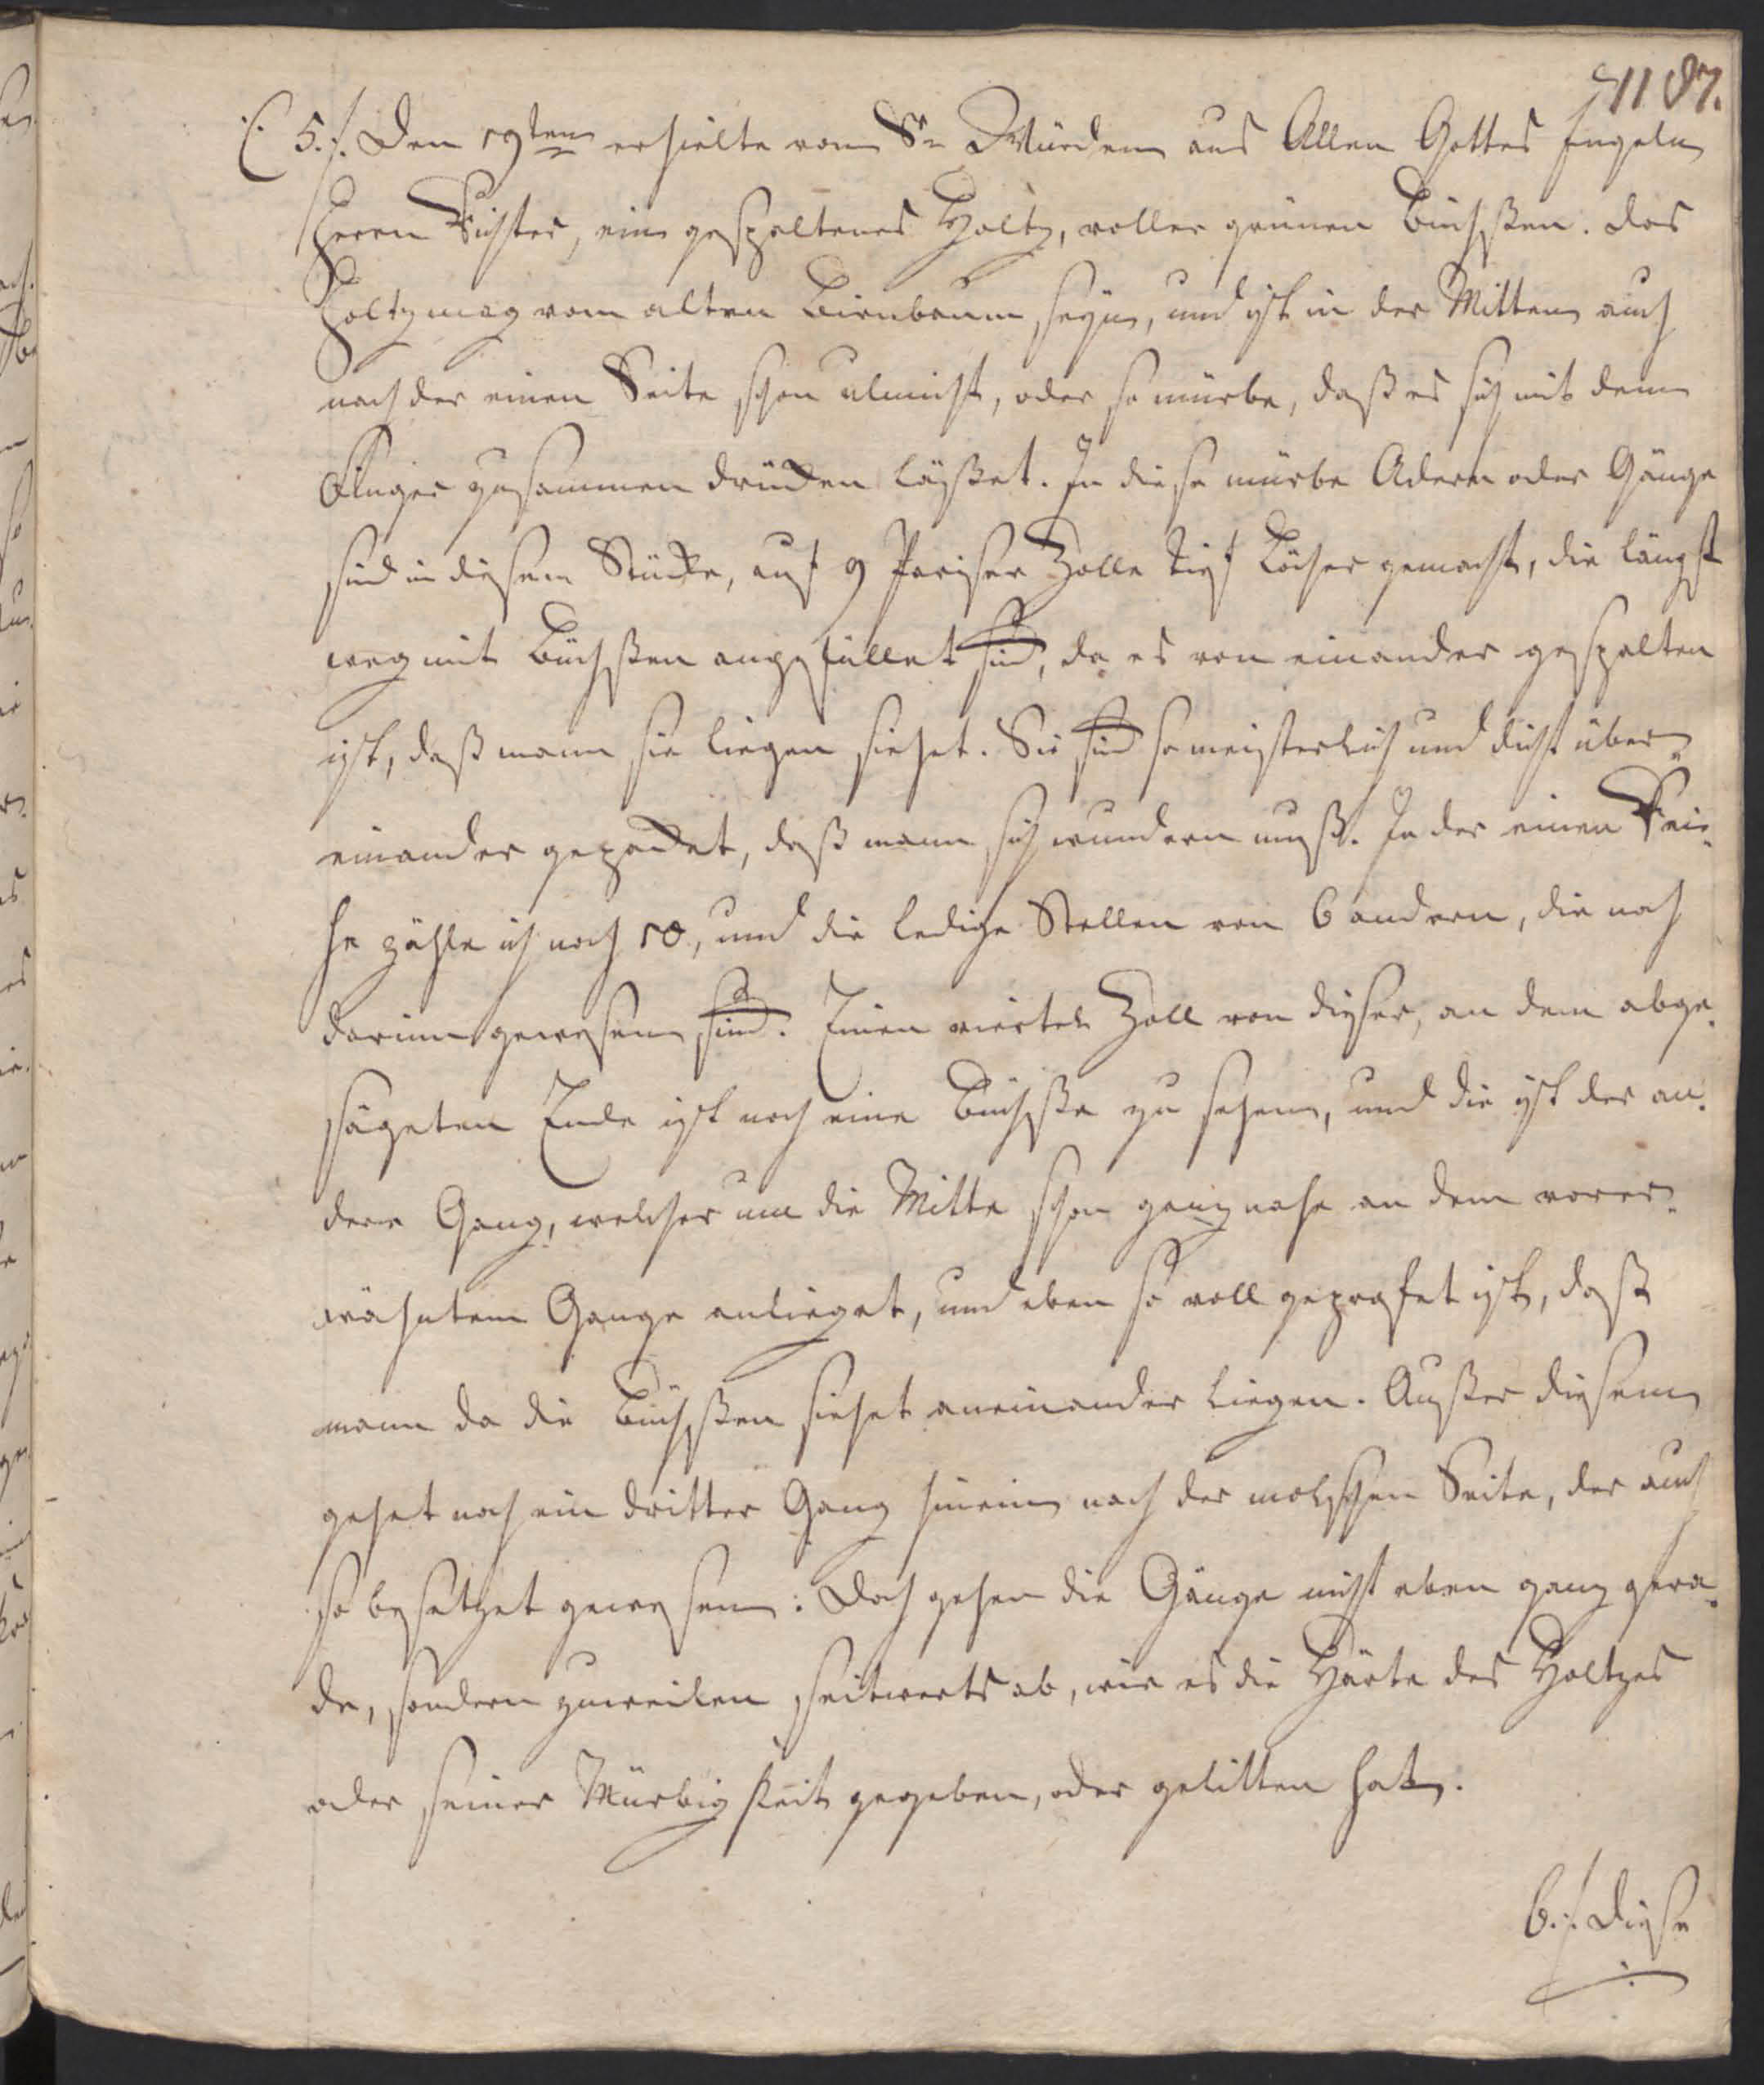 1187.
(5./. Den 19ten erhielte von Sr Würden aus Allen Gottes Engeln
Herrn Richter, ein gespaltenes Holtz, voller grünen Büchßen. Das
Holtz mag vom alten Birnbaum seyn, und ist in der Mitten auch
nach der einen Seite schon ulmicht, oder so mürbe, daß es sich mit dem
Finger zusammen drücken läßet. In diese mürbe Adern oder Gänge
sind in diesem Stücke, auf 9 Pariser Zolle tief Löcher gemacht, die längst
weg mit Büchßen angefüllet sind, da es von einander gespalten
ist, daß mann sie liegen siehet. Sie sind so meisterlich und dicht über-
einander gepacket, daß mann sich wundern muß. In der einen Rei-
he zähle ich noch 10, und die ledige Stellen von 6 andern, die noch
darinn gewesen sind. Einen viertel Zoll von dieser, an dem abge-
sägeten Ende ist noch eine Büchße zu sehen, und die ist der an-
dere Gang, welcher um die Mitte schon gantz nahe an dem vorer-
wähntem Gange anlieget, und eben so voll gepropfet ist, daß
mann da die Büchßen siehet aneinander liegen. Außer diesem
gehet noch ein dritter Gang hinein nach der molschen Seite, der auch
so besetzet gewesen: Doch gehen die Gänge nicht eben gantz gera-
de, sondern zuweilen seitwerts ab, wie es die Härte des Holtzes
oder seiner Mürbigkeit gegeben, oder gelitten hat.
6./. Diese